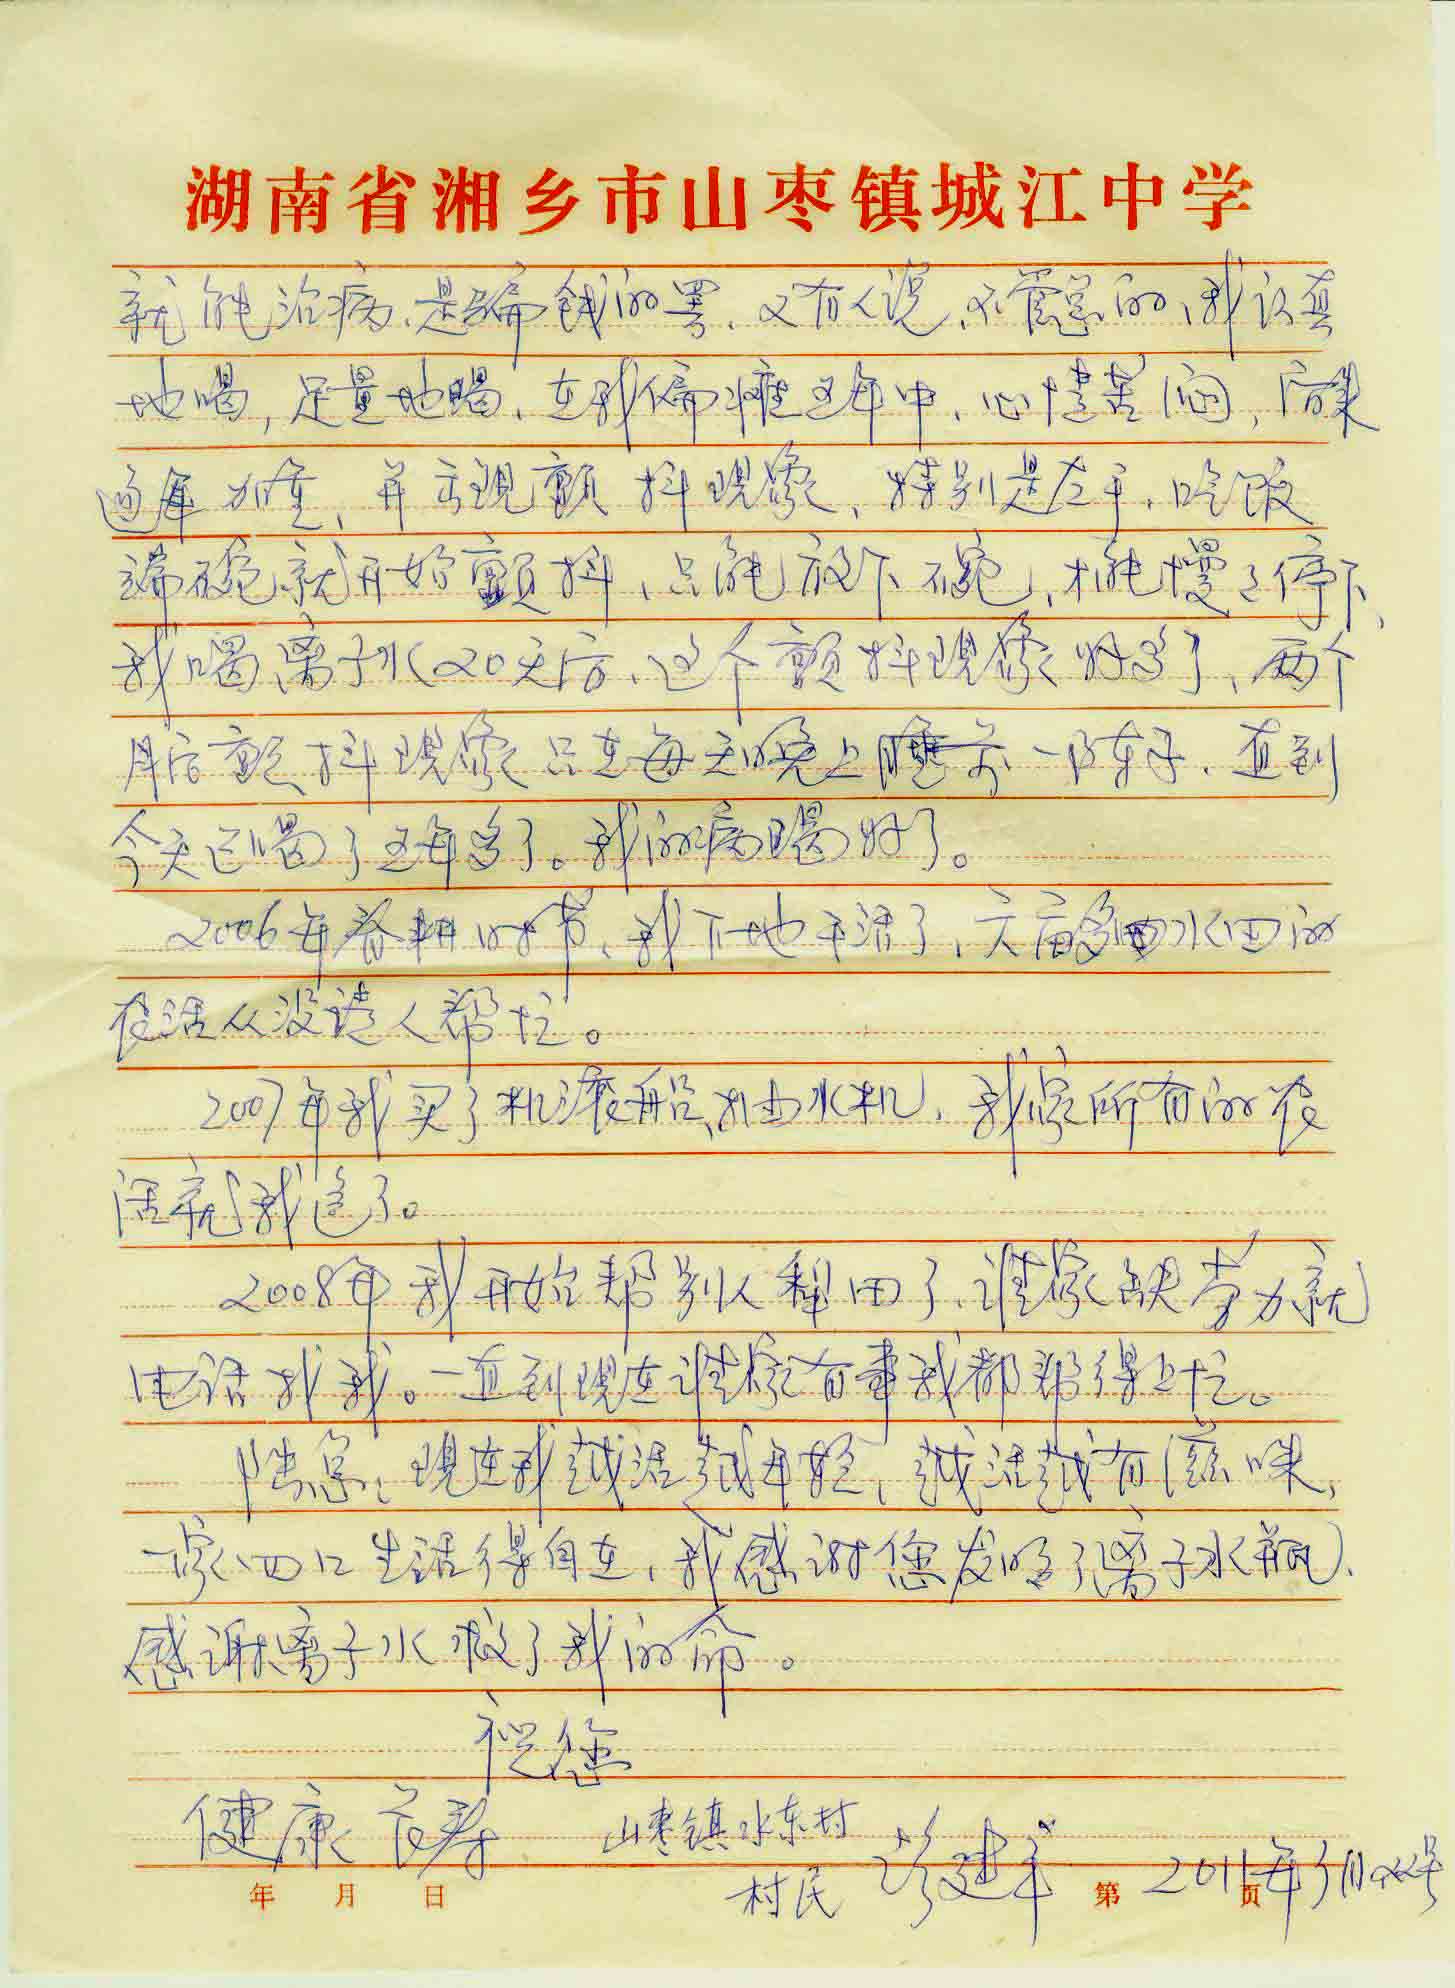 湖南省湘乡市山枣镇城江中学
就能治病,是骗钱的,又有人说,不管怎的,我认真
地喝,足量地喝,在我偏瘫这年中,心情苦闷,后来
逐年加重,并出现颤抖现象,特别是左手,吃饭
端碗就开始颤抖,只能放下碗,才能慢々停下,
我喝离子水20天后,这个颤抖现象好多了,两个
月后颤抖现象只在每天晚上睡前一阵子,直到
今天已喝了五年多了。我的病喝好了。
2006年春耕时节,我下地干活了,六亩多水田的
农活从没请人帮忙。
2007年我买了机滚船、抽水机,我家所有的农
活就我包了。
2008年我开始帮别人犁田了,谁家缺劳力就
电话找我。一直到现在谁家有事我都帮得上忙。
陈总:现在我越活越年轻,越活越有滋味,
一家四口生活得自在,我感谢您发明了离子水瓶,
感谢离子水救了我的命。
祝您
健康长寿
山枣镇水东村
村民 彭建军 2011年3月22号
年 月 日 第 页